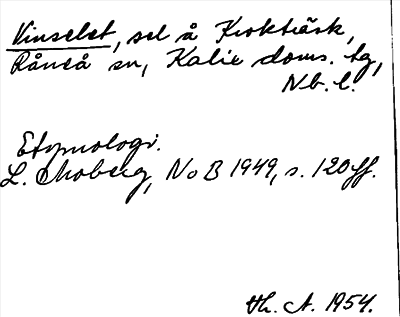 Vinselet, sel å Krokträsk,
Råneå sn, Kalix doms. tg,
Nb. l.
Etymologi.
L. Moberg, NoB 1949, s. 120 ff.
Hh. A. 1954.